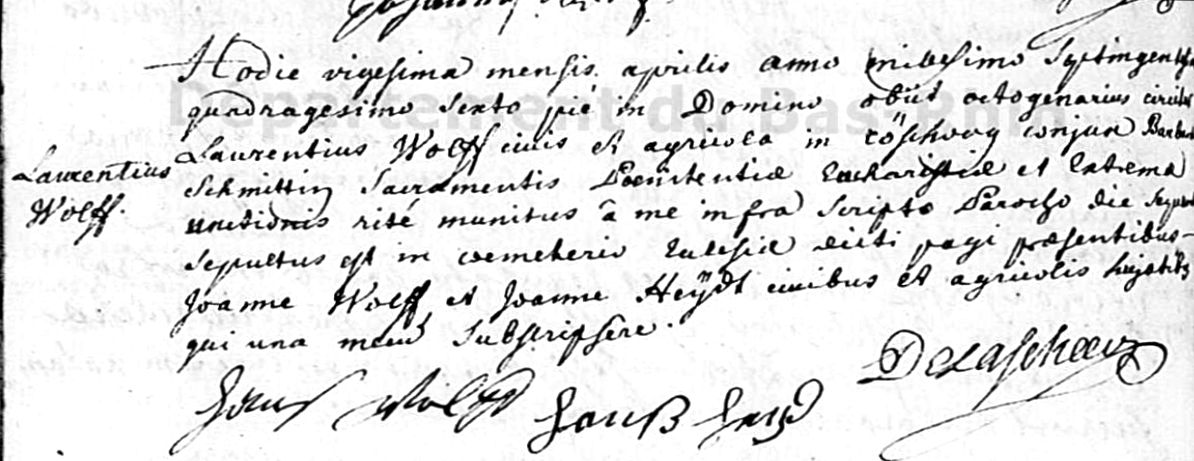 Hodie vigesima mensis aprilis anno millesimo Septingentesi
quadragesimo Sexto pié in Domino obiit octogenarius circiter
Laurentius Wolff civis et agricola in röschvoog conjux Barbara
Laurentius
Schmittin Sacramentis Poenitentiæ Eucharistiæ et Extrema
Wolff.
unctionis rité munitus â me infra Scripto Parocho die Sequenti
Sepultus est in coemeterio Eclesiæ dicti pagi præsentibus
Joanne Wolff et Joanne Heÿdt civibus et agricolis hujatibus
qui una mecum Subscripsere.
Hans Wolff Hanß Heyd
Delaschaux
Département du Bas-Rhin